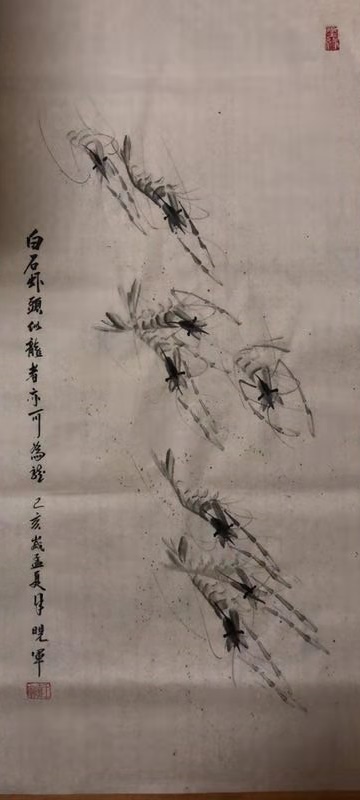 白石虾頭似龍者亦可為 己亥歲孟夏月 軍